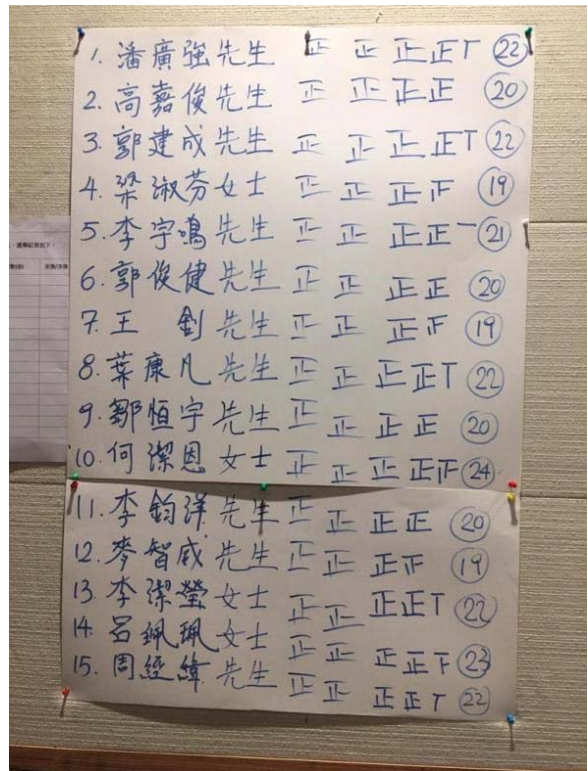 1. 潘廣強先生 正 正 正 正 T 22
2. 高嘉俊先生 正 正 正 正 20
3. 郭建成先生 正 正 正 正 T 22
4. 梁淑芬女士 正 正 正 正 19
5. 李宇鳴先生 正 正 正 正 一 21
6. 郭俊健先生 正 正 正 正 20
7. 王 釗先生 正 正 正 正 19
8. 葉康凡先生 正 正 正 正 T 22
9. 鄒恒宇先生 正 正 正 正 20
10. 何潔恩女士 正 正 正 正 正 24
11. 李鈞洋先生 正 正 正 正 20
12. 麥智威先生 正 正 正 正 19
13. 李潔瑩女士 正 正 正 正 T 22
14. 呂珮珮女士 正 正 正 正 下 23
15. 周經緯先生 正 正 正 正 T 22